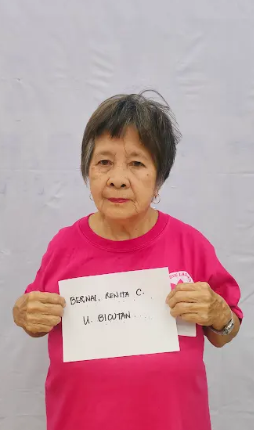 BERNAL, RENITA C.
U. BICUTAN